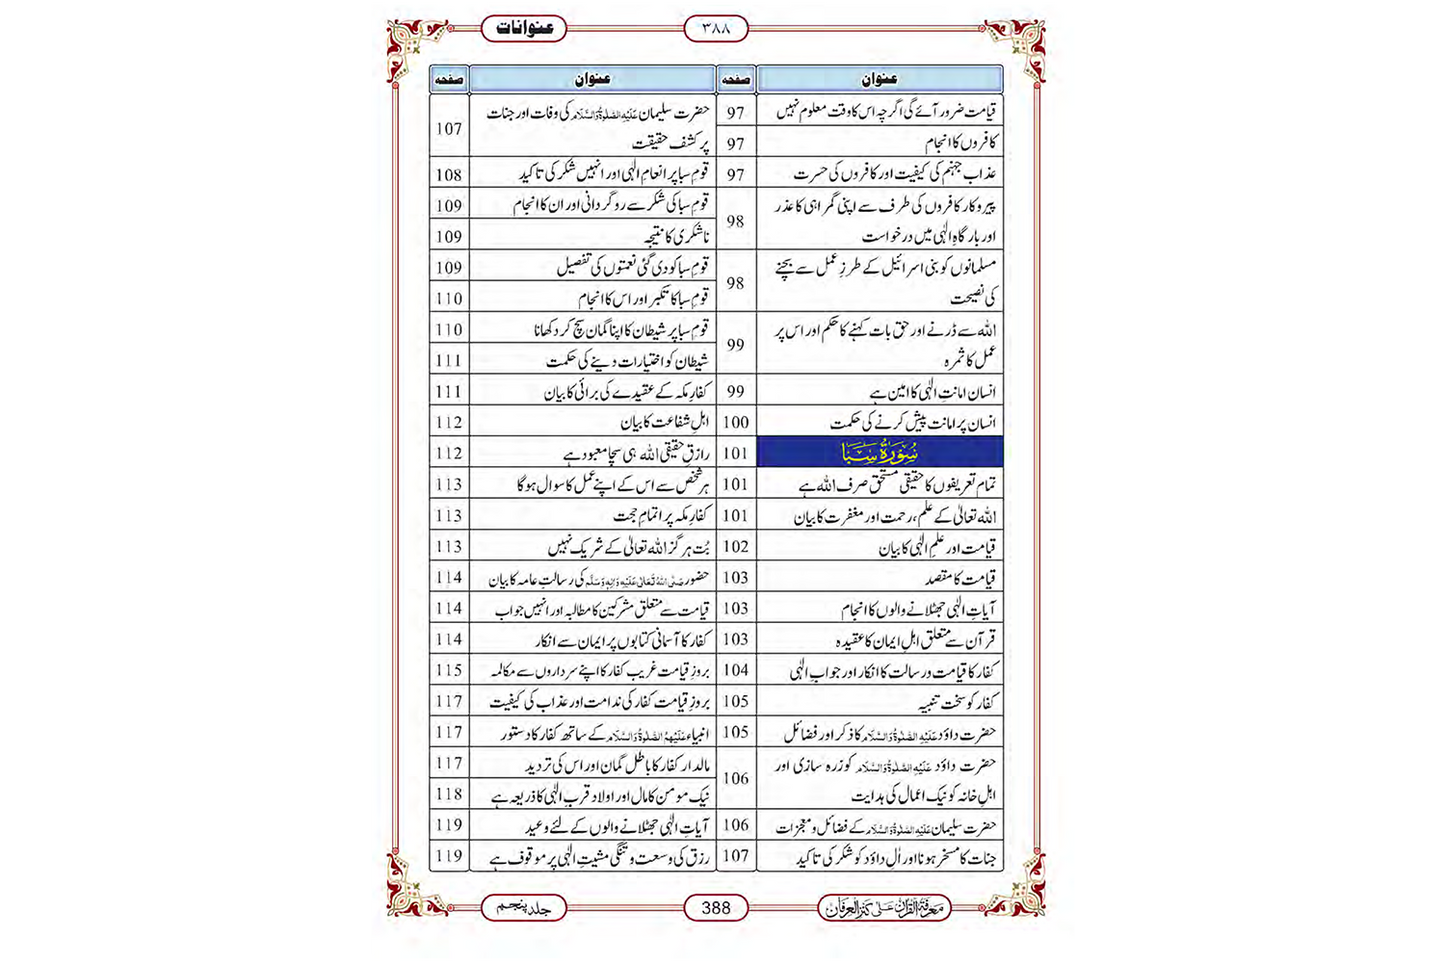 عنوانات
۳۸۸
عنوان صفحہ
قیامت ضرور آئے گی اگرچہ اس کا وقت معلوم نہیں 97
کافروں کا انجام 97
عذاب جہنم کی کیفیت اور کافروں کی حسرت 97
پیروکار کافروں کی طرف سے اپنی گمراہی کا عذر
اور بارگاہِ الٰہی میں درخواست 98
مسلمانوں کو بنی اسرائیل کے طرزِ عمل سے بچنے
کی نصیحت 98
اللہ سے ڈرنے اور حق بات کہنے کا حکم اور اس پر
عمل کا ثمرہ 99
انسان امانتِ الٰہی کا امین ہے 99
انسان پر امانت پیش کرنے کی حکمت 100
سُوْرَةُ سَبَا 101
تمام تعریفوں کا حقیقی مستحق صرف اللہ ہے 101
اللہ تعالیٰ کے علم، رحمت اور مغفرت کا بیان 101
قیامت اور علمِ الٰہی کا بیان 102
قیامت کا مقصد 103
آیاتِ الٰہی جھٹلانے والوں کا انجام 103
قرآن سے متعلق اہلِ ایمان کا عقیدہ 103
کفار کا قیامت و رسالت کا انکار اور جوابِ الٰہی 104
کفار کو سخت تنبیہ 105
حضرت داؤد عَلَیْہِ الصَّلٰوۃُ وَالسَّلَام کا ذکر اور فضائل 105
حضرت داؤد عَلَیْہِ الصَّلٰوۃُ وَالسَّلَام کو زرہ سازی اور
اہلِ خانہ کو نیک اعمال کی ہدایت 106
حضرت سلیمان عَلَیْہِ الصَّلٰوۃُ وَالسَّلَام کے فضائل و معجزات 106
جنات کا مسخر ہونا اور اٰلِ داؤد کو شکر کی تاکید 107
عنوان صفحہ
حضرت سلیمان عَلَیْہِ الصَّلٰوۃُ وَالسَّلَام کی وفات اور جنات
پر کشف حقیقت 107
قومِ سبا پر انعامِ الٰہی اور انہیں شکر کی تاکید 108
قومِ سبا کی شکر سے روگردانی اور ان کا انجام 109
ناشکری کا نتیجہ 109
قومِ سبا کو دی گئی نعمتوں کی تفصیل 109
قومِ سبا کا تکبر اور اس کا انجام 110
قومِ سبا پر شیطان کا اپنا گمان سچ کر دکھانا 110
شیطان کو اختیارات دینے کی حکمت 111
کفارِ مکہ کے عقیدے کی برائی کا بیان 111
اہلِ شفاعت کا بیان 112
رازقِ حقیقی اللہ ہی سچا معبود ہے 112
ہر شخص سے اس کے اپنے عمل کا سوال ہوگا 113
کفارِ مکہ پر اتمامِ حجت 113
بُت ہرگز اللہ تعالیٰ کے شریک نہیں 113
حضور صَلَّی اللہُ تَعَالٰی عَلَیْہِ وَاٰلِہٖ وَسَلَّم کی رسالتِ عامہ کا بیان 114
قیامت سے متعلق مشرکین کا مطالبہ اور انہیں جواب 114
کفار کا آسمانی کتابوں پر ایمان سے انکار 114
بروزِ قیامت غریب کفار کا اپنے سرداروں سے مکالمہ 115
بروزِ قیامت کفار کی ندامت اور عذاب کی کیفیت 117
انبیاء عَلَیْہِمُ الصَّلٰوۃُ وَالسَّلَام کے ساتھ کفار کا دستور 117
مالدار کفار کا باطل گمان اور اس کی تردید 117
نیک مومن کا مال اور اولاد قربِ الٰہی کا ذریعہ ہے 118
آیاتِ الٰہی جھٹلانے والوں کے لئے وعید 119
رزق کی وسعت و تنگی مشیتِ الٰہی پر موقوف ہے 119
معرفۃ القرآن علی کنز العرفان
388
جلد پنجم